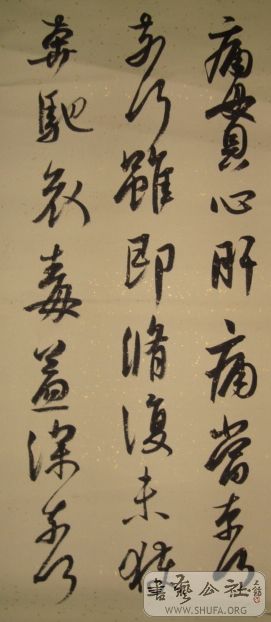 痛貫心肝痛當奈何
奈何雖即脩復未獲
奔馳哀毒益深奈何
書藝公社
WWW.SHUFA.ORG